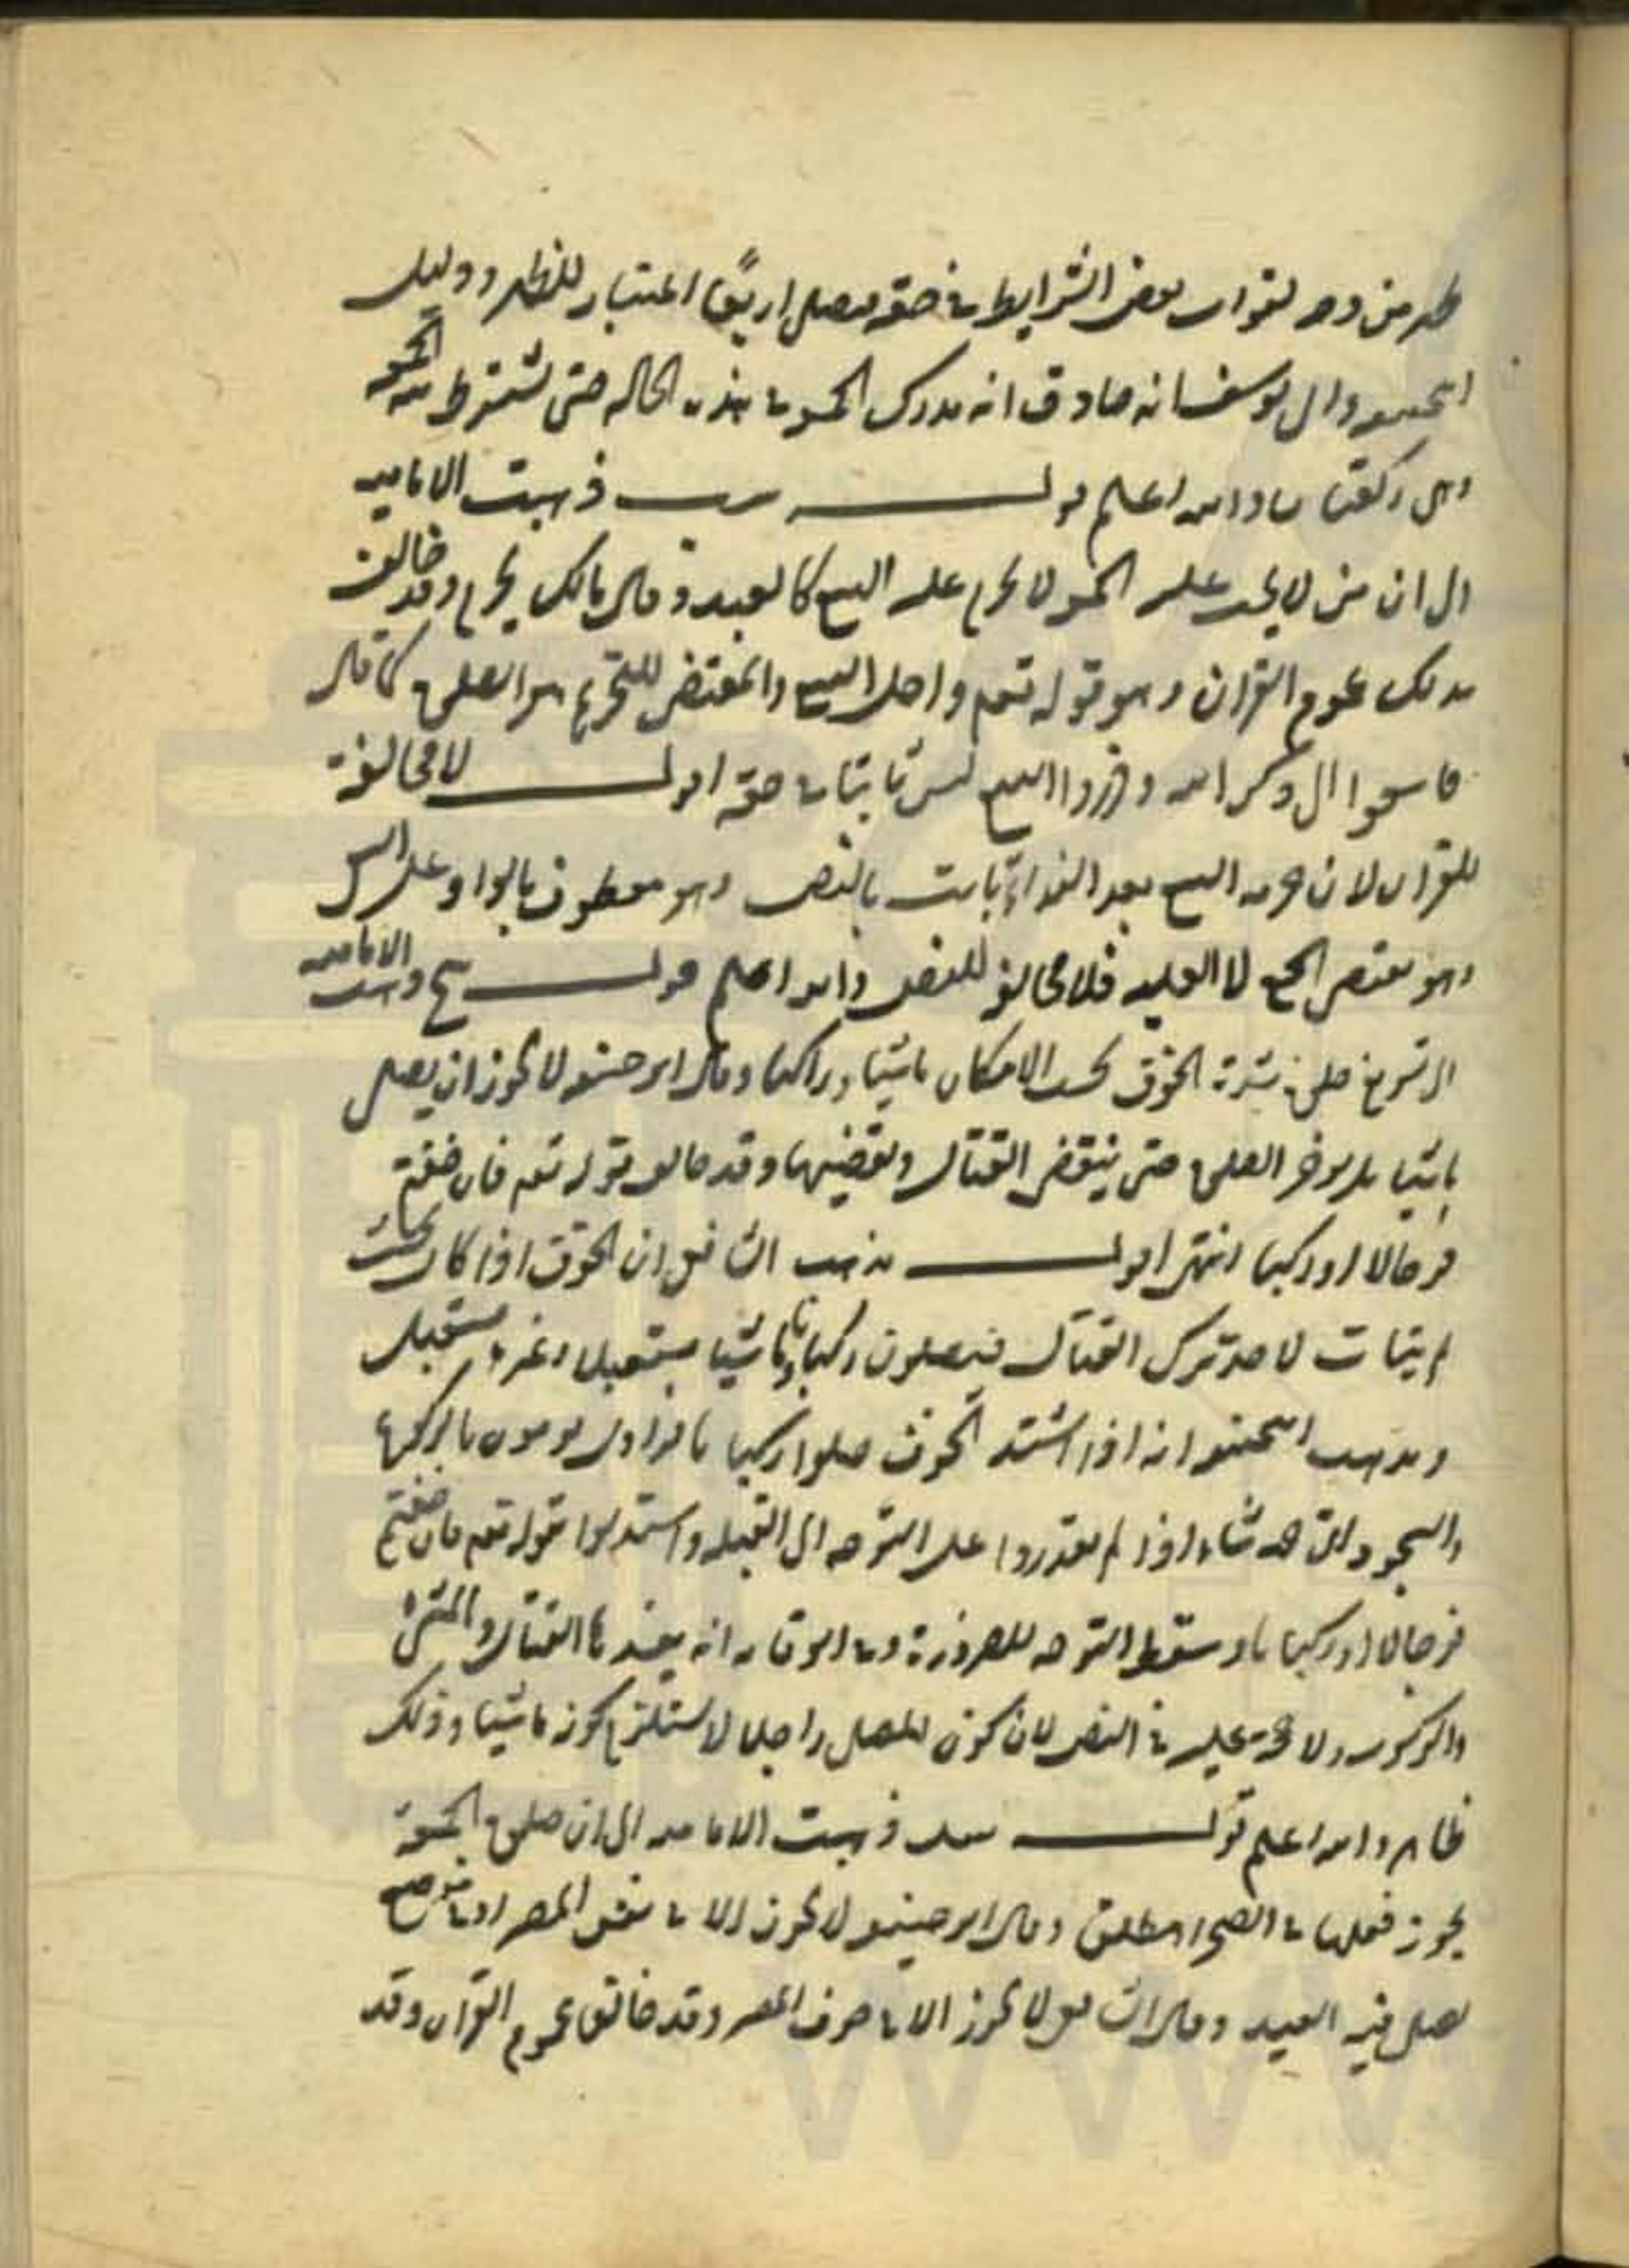 ظهر من وجه لفوات بعض الشرايط في حقه فيصلي اربعا اعتبار للظهر ودليل
ابي حنيفه وابي يوسف انه صادق انه مدرك الجمعه في هذه الحاله حتى تشترط نية الجمعه
وهي ركعتان والله اعلم قوله ذهبت الاماميه
الى ان من لا يجب عليه الجمعه لا يحرم عليه البيع كالعبيد وقال مالك يحرم وقد خالف
بذلك عموم القران وهو قوله تعم واحل الله البيع والمقتضي للتحريم هو الصلوة كما قال
فاسعوا الى ذكر الله وذروا البيع ليس ثابتا في حقه اقول لا مخالفة
للقران لان حرمه البيع بعد النداء ثابت بالنص وهو معطوف بالواو على السعي
وهو مقتضى الجمع لا العليه فلا مخالفه للنص والله اعلم قوله يج ذهبت الاماميه
الى تسويغ صلوة شدة الخوف بحسب الامكان ماشيا وراكبا وقال ابو حنيفه لا يجوز ان يصلي
ماشيا بل يوخر الصلوة حتى ينقضي القتال ويقضيها وقد خالف قوله تعم فان خفتم
فرجالا او ركبانا انتهى اقول مذهب الشافعي ان الخوف اذا كان بحيث
لم يتات لاحد ترك القتال فيصلون ركبانا ومشاتا مستقبل وغير مستقبل
ومذهب ابي حنيفه انه اذا اشتد الخوف صلوا ركبانا فرادى يومون بالركوع
والسجود الى اي جهه شاءوا اذا لم يقدروا على التوجه الى القبله واستدلوا بقوله تعم فان خفتم
فرجالا او ركبانا وسقط التوجه للضرورة وفي الوقايه انه يفسدها القتال والمشي
والركوب ولا حجة عليه في النص لان كون المصلي راجلا لا يستلزم كونه ماشيا وذلك
ظاهر والله اعلم قوله يد ذهبت الاماميه الى ان صلوة الجمعة
يجوز فعلها في الصحراء مطلقا وقال ابو حنيفه لا يجوز الا في نفس المصر او في موضع
يصلي فيه العيد وقال الشافعي لا يجوز الا في جوف المصر وقد خالفا عموم القران وقد